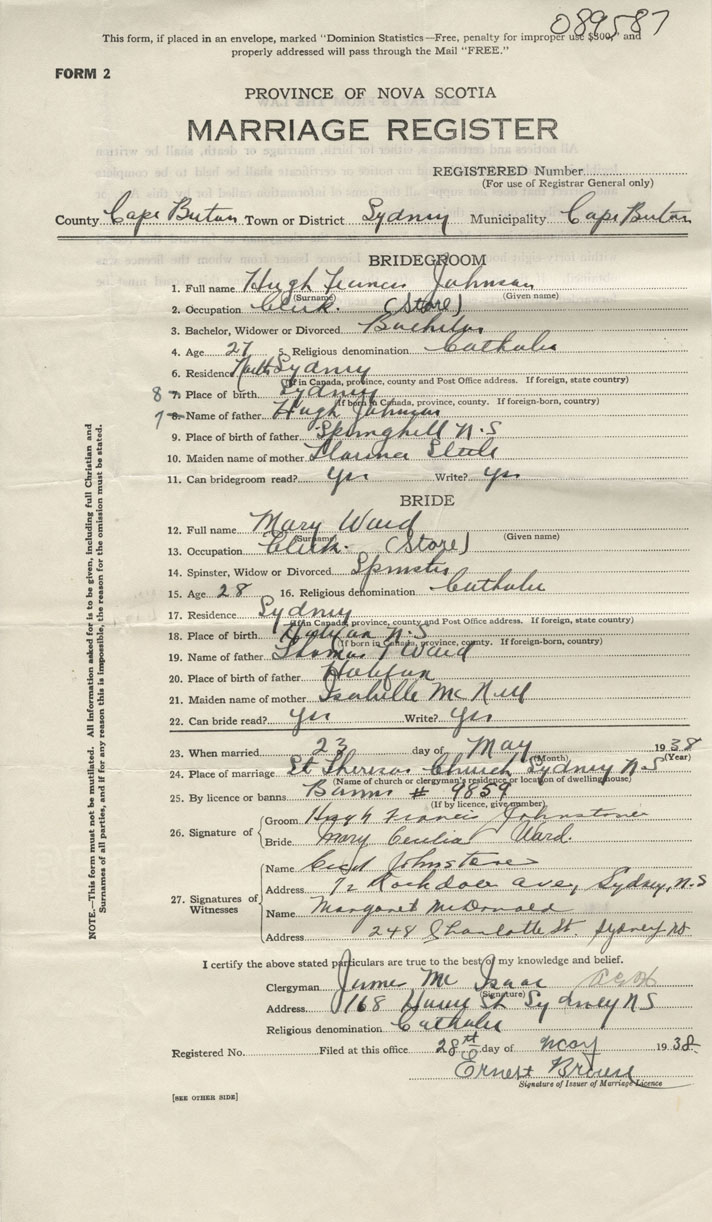 089587
This form, if placed in an envelope, marked "Dominion Statistics—Free, penalty for improper use $300," and
properly addressed will pass through the Mail "FREE."
FORM 2
PROVINCE OF NOVA SCOTIA
MARRIAGE REGISTER
REGISTERED Number
(For use of Registrar General only)
County Cape Breton Town or District Sydney Municipality Cape Breton
BRIDEGROOM
1. Full name Hugh Francis Johnson
(Surname) (Given name)
2. Occupation Clerk. (Store)
3. Bachelor, Widower or Divorced Bachelor
4. Age 27 5. Religious denomination Catholic
6. Residence North Sydney
(If in Canada, province, county and Post Office address. If foreign, state country)
8 7. Place of birth Sydney
(If born in Canada, province, county. If foreign-born, country)
7 8. Name of father Hugh Johnson
9. Place of birth of father Springhill N.S
10. Maiden name of mother Steele
11. Can bridegroom read? Yes Write? Yes
BRIDE
12. Full name Mary Ward
(Surname) (Given name)
13. Occupation Clerk. (Store)
14. Spinster, Widow or Divorced Spinster
15. Age 28 16. Religious denomination Catholic
17. Residence Sydney
(If in Canada, province, county and Post Office address. If foreign, state country)
18. Place of birth Halifax N.S
(If born in Canada, province, county. If foreign-born, country)
19. Name of father Thomas J Ward
20. Place of birth of father Halifax
21. Maiden name of mother Isabelle McNeil
22. Can bride read? Yes Write? Yes
23. When married 23 day of May 1938
(Month) (Year)
24. Place of marriage St Theresas Church Sydney N.S
(Name of church or clergyman's residence or location of dwelling house)
25. By licence or banns Banns # 9859
(If by licence, give number)
26. Signature of
Groom Hugh Francis Johnstone
Bride Mary Cecilia Ward.
27. Signatures of Witnesses
Name Cecil Johnstone
Address 72 Rockdale ave, Sydney, N.S
Name Margaret McDonald
Address 248 Charlotte St. Sydney NS
I certify the above stated particulars are true to the best of my knowledge and belief.
Clergyman James Mc Isaac
(Signature)
Address 168 St Sydney N S
Religious denomination Catholic
Registered No. Filed at this office 28 day of May 1938.
Ernest
Signature of Issuer of Marriage Licence
[SEE OTHER SIDE]
NOTE.—This form must not be mutilated. All information asked for is to be given, including full Christian and
Surnames of all parties, and if for any reason this is impossible, the reason for the omission must be stated.